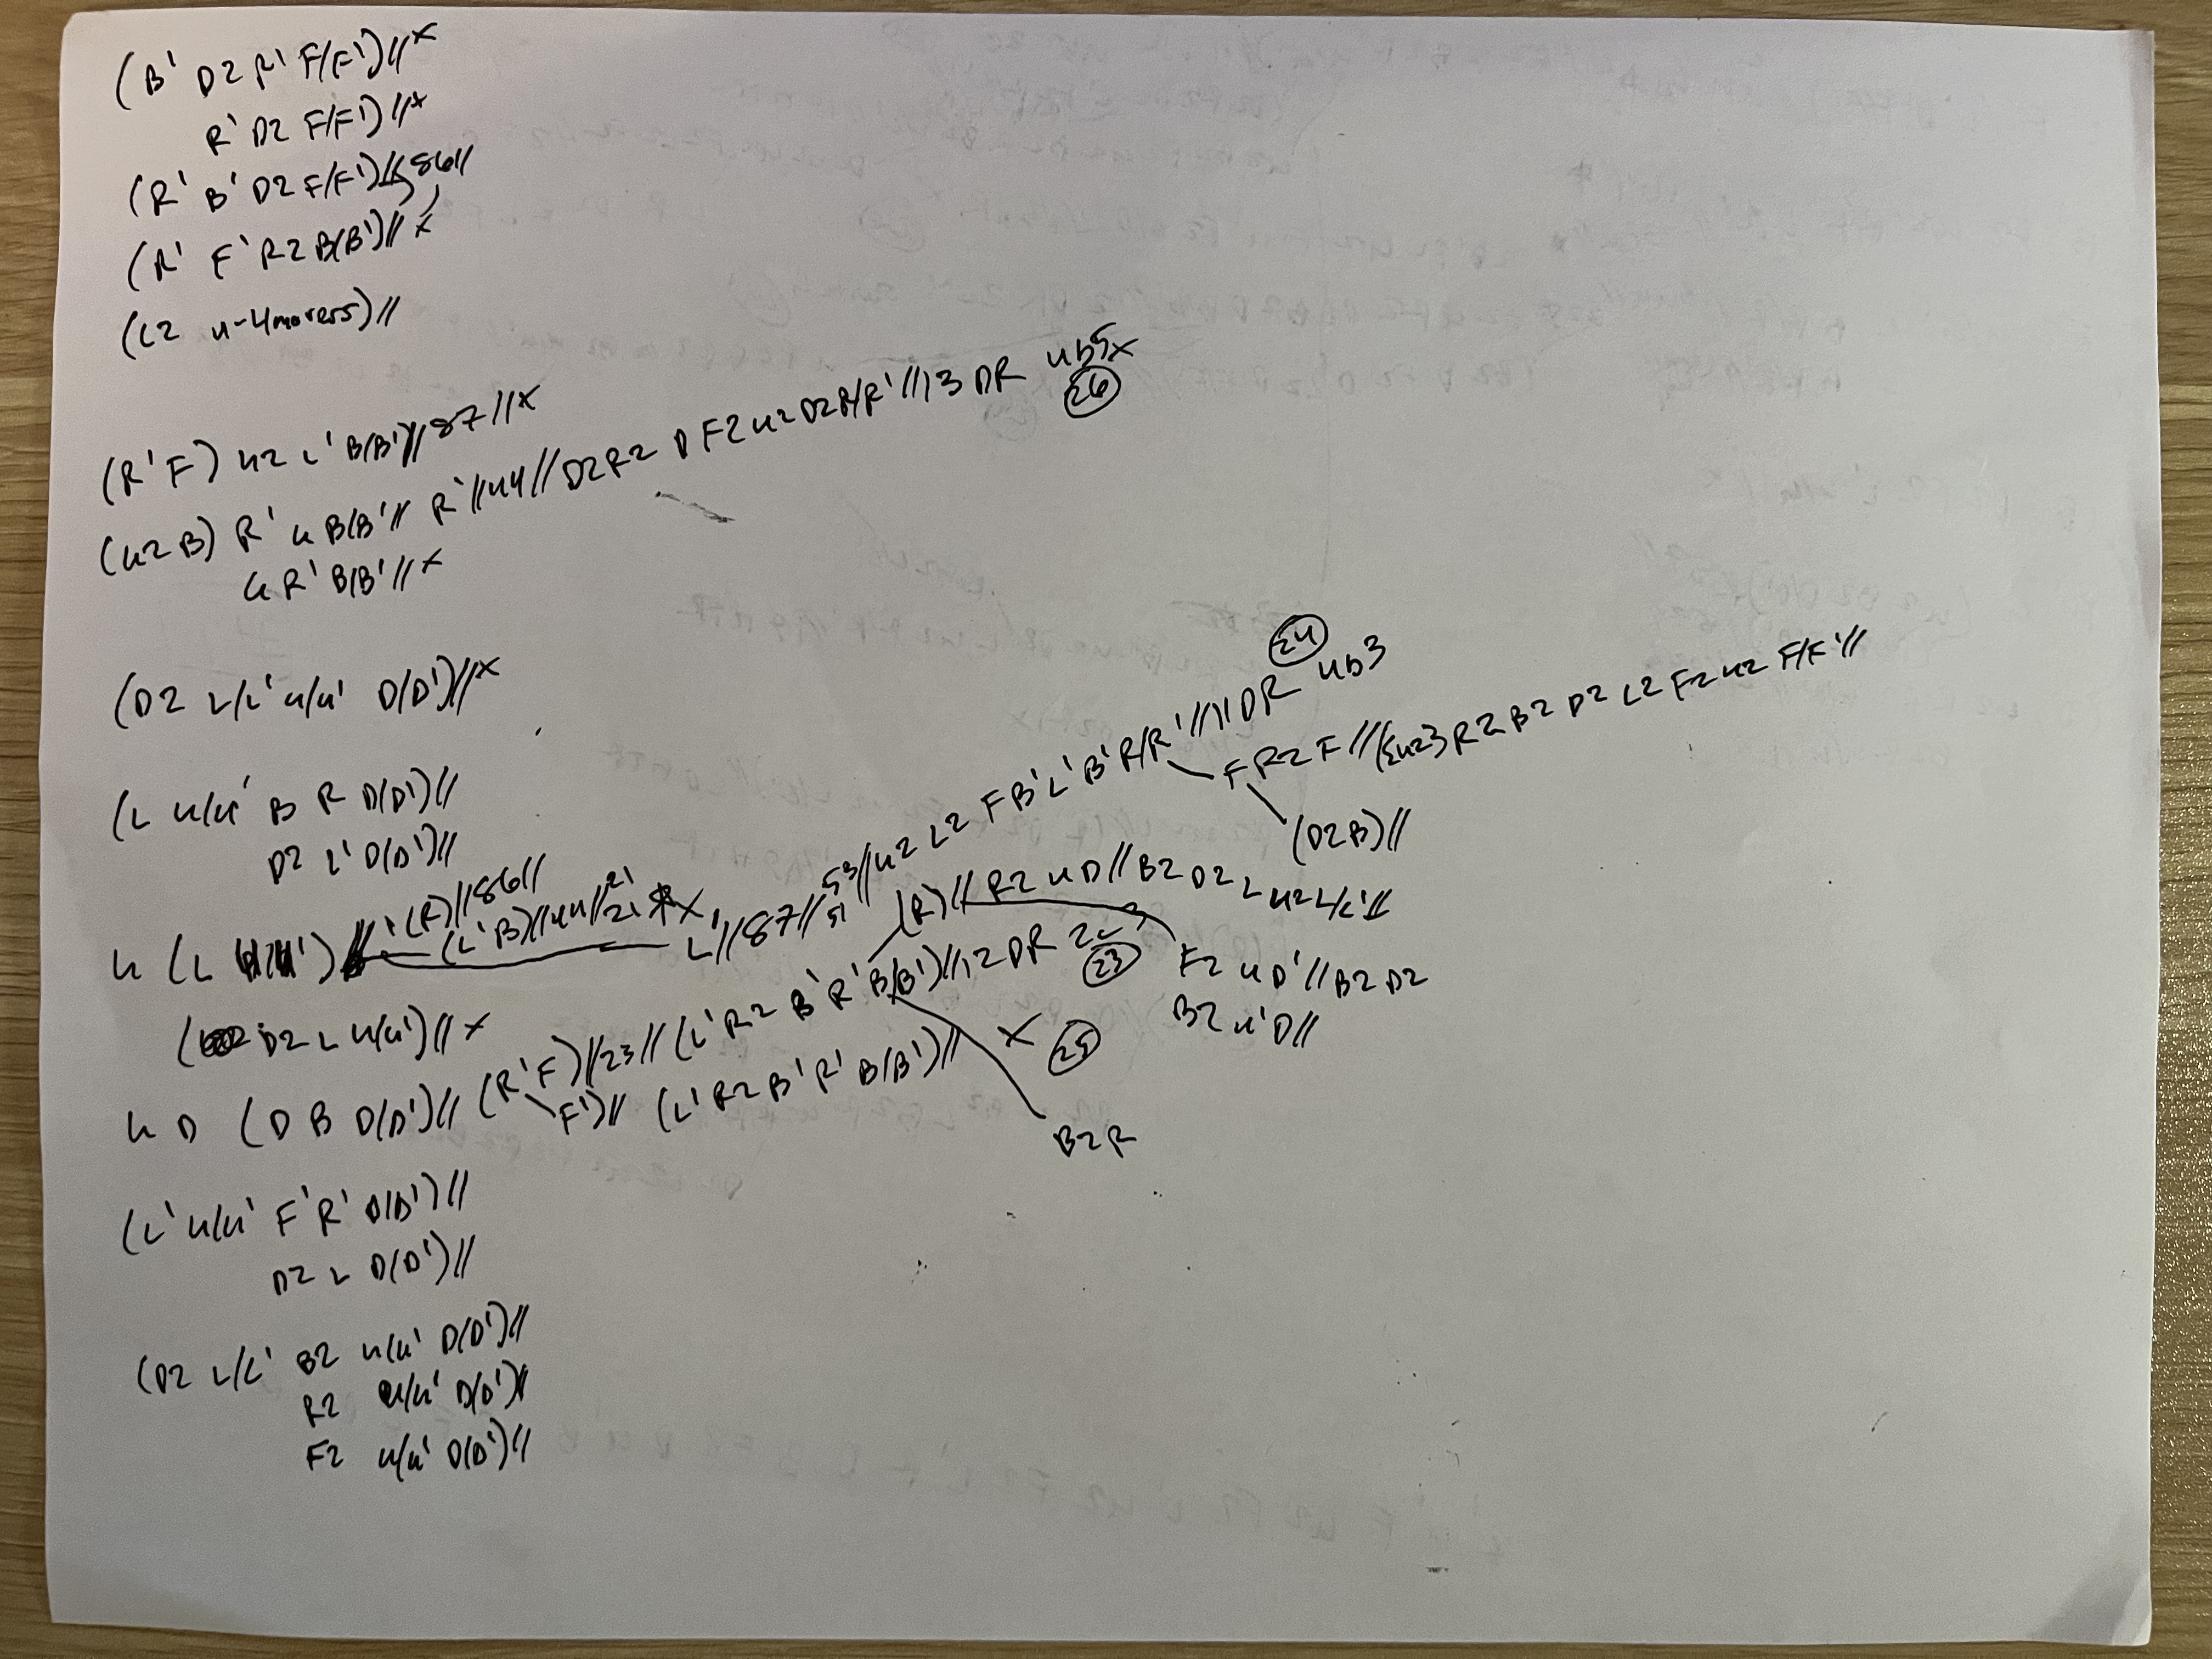 (B' D2 R' F/F')//x
R' D2 F/F')//x
(R' B' D2 F/F')//86//
(R' F' R2 B(B')//x
(L2 u-4movers)//
(R'F) u2 L' B(B')//87//x
(u2 B) R' u B(B'// R'//44// D2R2 D F2 u2 D2 R/R'//13 DR ub5x
(26)
u R' B(B'//x
(D2 L/L' u/u' D(D')//x
(L u/u' B R D(D')//
D2 L' D(D')//
u (L
(R)//86//
(L'B)//44//21
L'//87//53//u2 L2 F B' L' B' R/R'//11 DR ub3
51
(24)
F R2 F//({u2} R2 B2 D2 L2 F2 u2 F/F'//
(D2B)//
(D2 L u(u')//x
u D (D B D(D')// (R'F)//23// (L' R2 B' R' B(B')//12 DR
(23)
(R)// R2 u D// B2 D2 L u2 L/L'//
F2 u D'// B2 D2
B2 u' D//
F')// (L' R2 B' R' B(B')// x (25)
B2 R
(L' u/u' F' R' D(D')//
D2 L D(D')//
(D2 L/L' B2 u/u' D(D')//
R2 u/u' D(D')//
F2 u/u' D(D')//